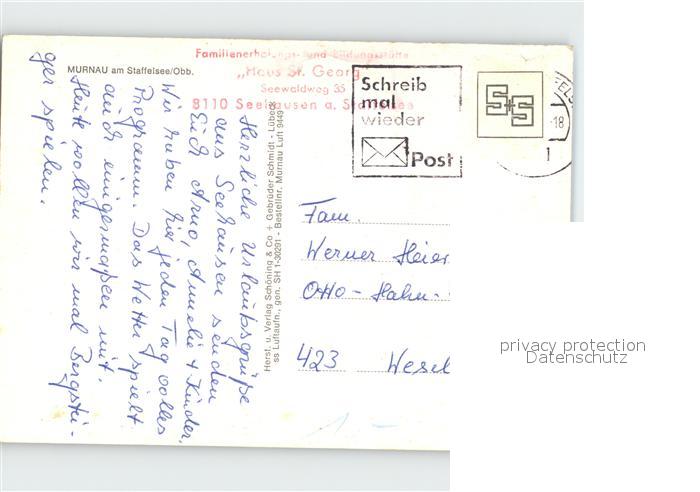 Familienerholungs- und Bildungsstätte
MURNAU am Staffelsee/Obb.
„Haus St. Georg
Seewaldweg 35
8110 Seehausen a. Staffelsee
Herzliche Urlaubsgrüße
aus Seehausen senden
Euch Arno, Amelie + Kinder.
Wir haben hier jeden Tag volles
Programm. Das Wetter spielt
auch einigermaßen mit.
Heute wollen wir mal Bergstei-
ger spielen.
Herst. u. Verlag Schöning & Co + Gebrüder Schmidt - Lübeck
ss Luftaufn., gen. SH 1-30281 - Bestellnr. Murnau Luft 9449
Schreib
mal
wieder
Post
S+S
-18
1
Fam.
Werner Heier
Otto-Hahn-
423 Wesel
1.-
privacy protection
Datenschutz